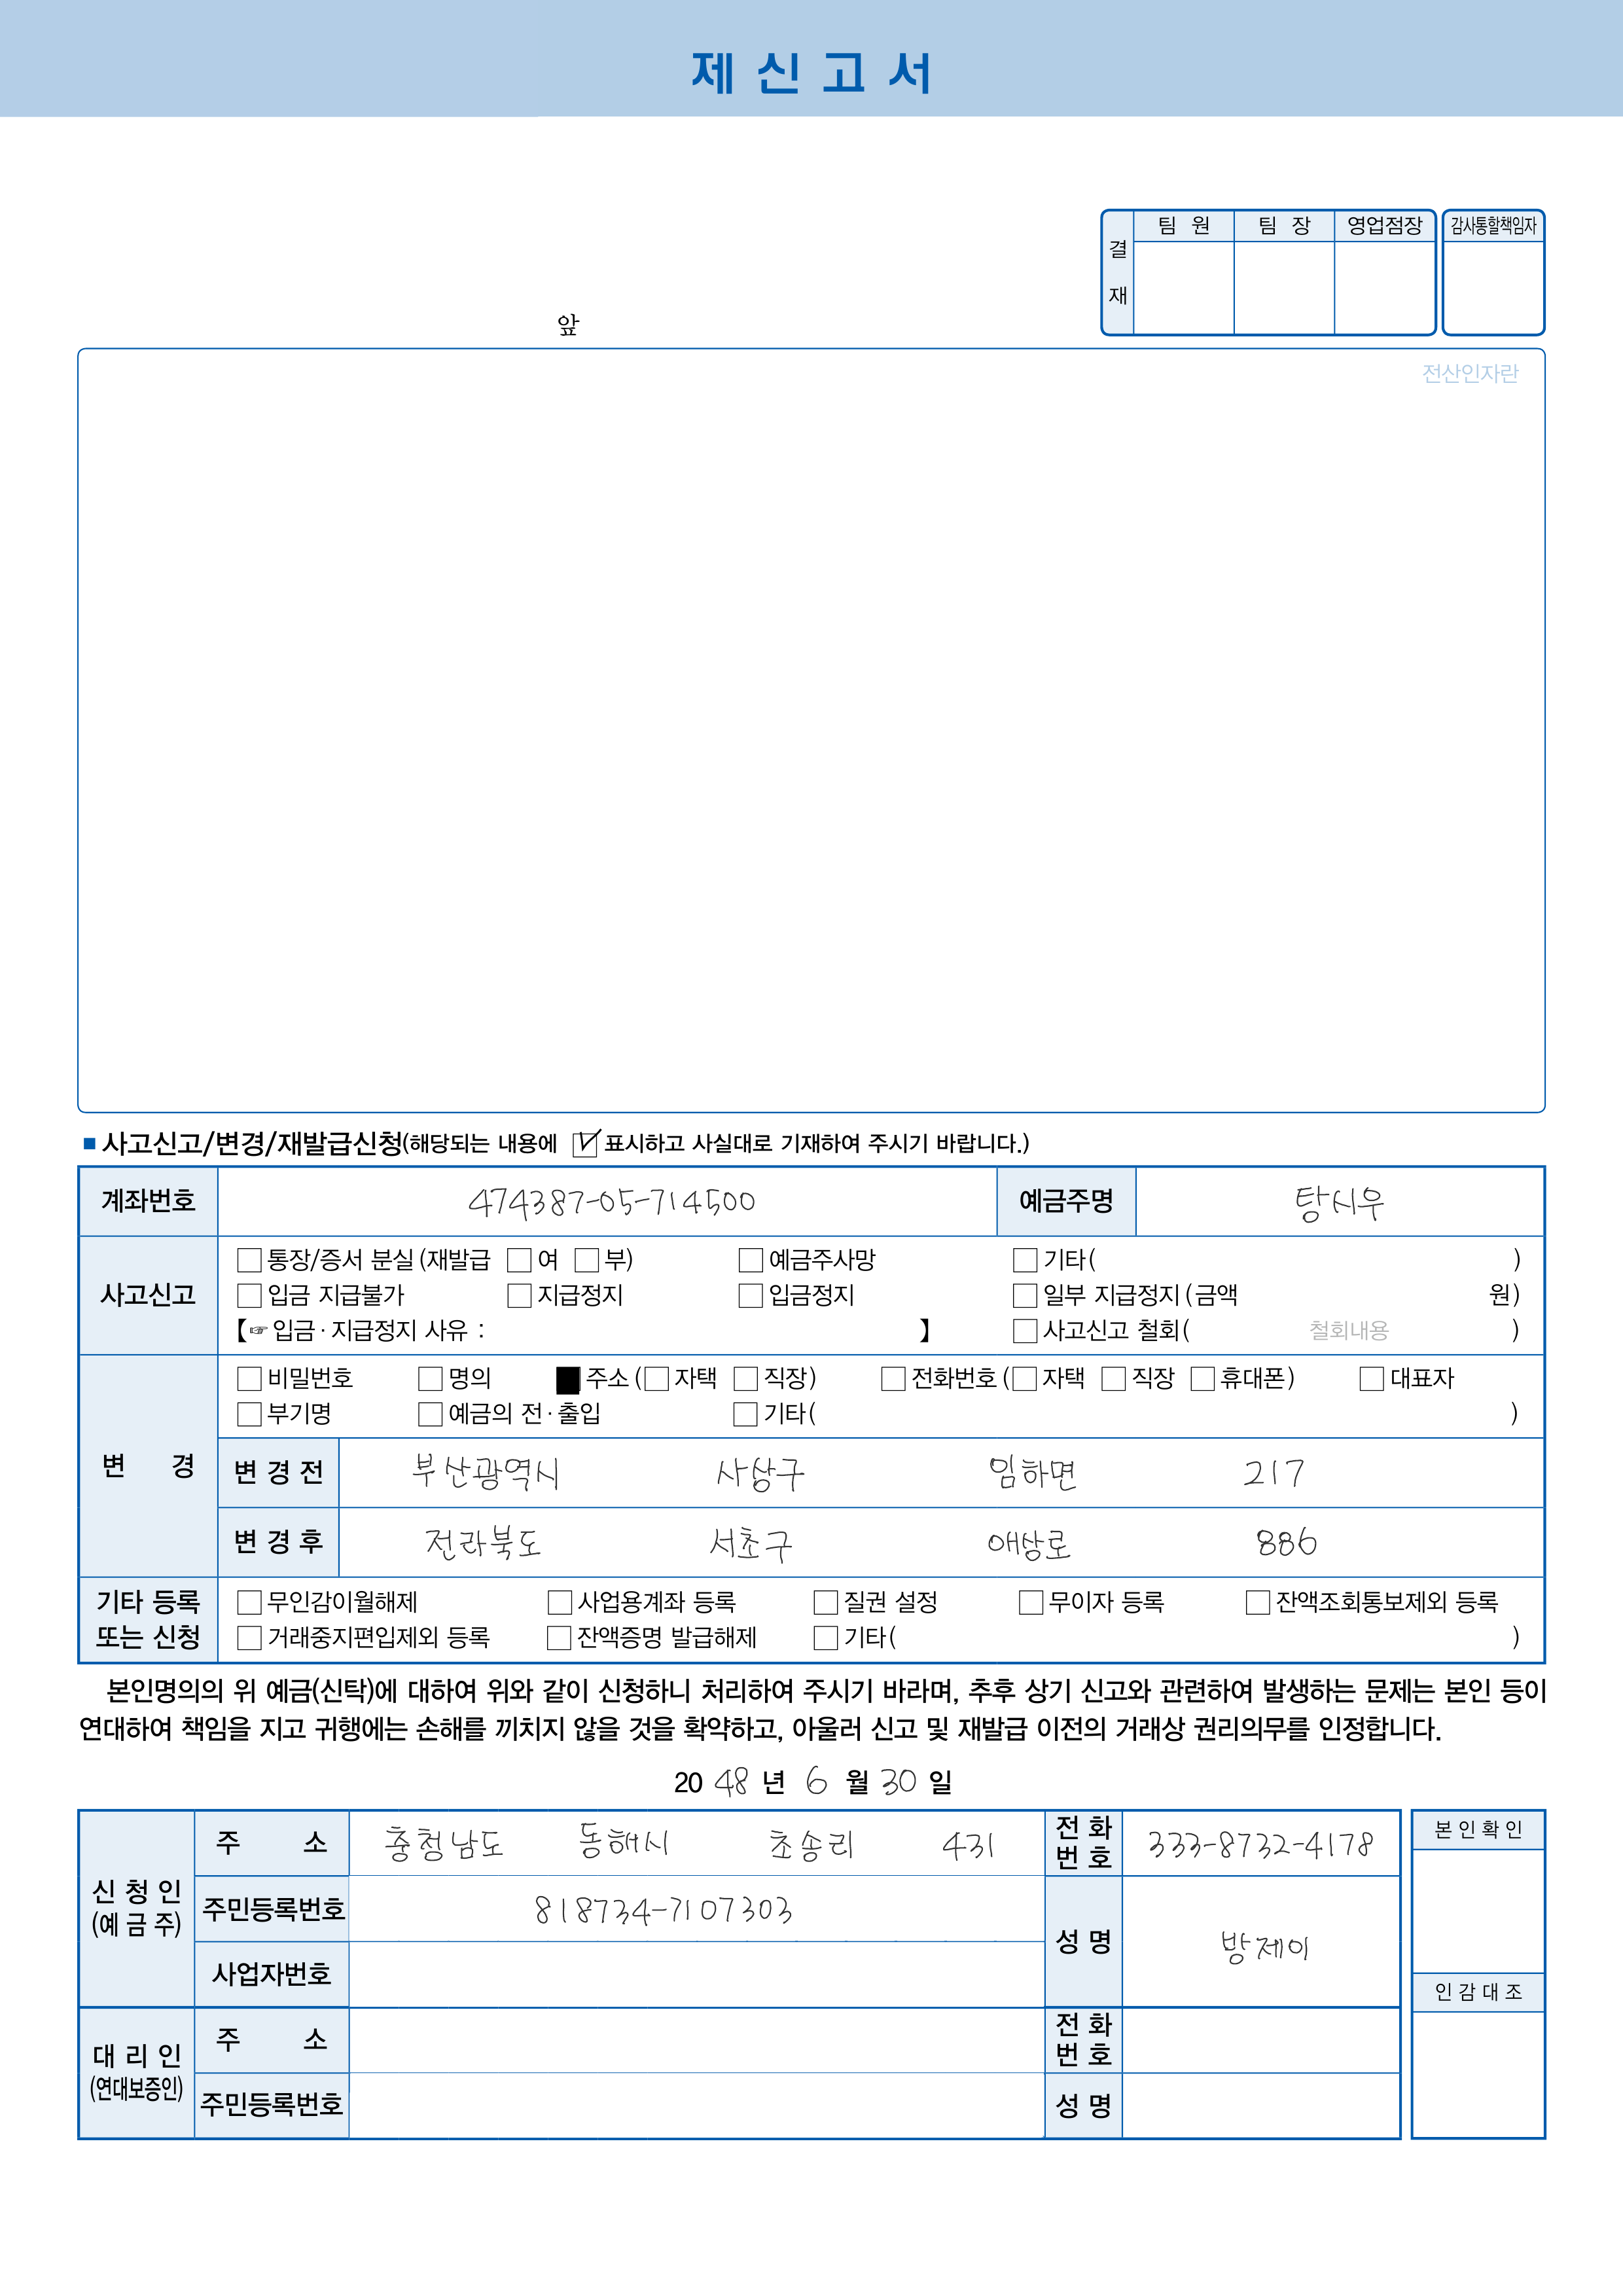 제 신 고 서
결 재 팀 원 팀 장 영업점장 감사통할책임자
앞
전산인자란
■ 사고신고/변경/재발급신청(해당되는 내용에 ☑ 표시하고 사실대로 기재하여 주시기 바랍니다.)
계좌번호 474387-05-714500 예금주명 탕시우
사고신고
□ 통장/증서 분실 (재발급 □ 여 □ 부) □ 예금주사망 □ 기타( )
□ 입금 지급불가 □ 지급정지 □ 입금정지 □ 일부 지급정지 (금액 원)
【☞ 입금·지급정지 사유 : 】 □ 사고신고 철회( 철회내용 )
변 경
□ 비밀번호 □ 명의 ■ 주소 (□ 자택 □ 직장) □ 전화번호 (□ 자택 □ 직장 □ 휴대폰) □ 대표자
□ 부기명 □ 예금의 전·출입 □ 기타( )
변 경 전 부산광역시 사상구 임하면 217
변 경 후 전라북도 서초구 애상로 886
기타 등록 또는 신청
□ 무인감이월해제 □ 사업용계좌 등록 □ 질권 설정 □ 무이자 등록 □ 잔액조회통보제외 등록
□ 거래중지편입제외 등록 □ 잔액증명 발급해제 □ 기타( )
본인명의의 위 예금(신탁)에 대하여 위와 같이 신청하니 처리하여 주시기 바라며, 추후 상기 신고와 관련하여 발생하는 문제는 본인 등이
연대하여 책임을 지고 귀행에는 손해를 끼치지 않을 것을 확약하고, 아울러 신고 및 재발급 이전의 거래상 권리의무를 인정합니다.
20 48 년 6 월 30 일
신 청 인 (예 금 주)
주 소 충청남도 동해시 초송리 431 전 화 번 호 333-8732-4178
주민등록번호 818734-7107303 성 명 방제이
사업자번호
대 리 인 (연대보증인)
주 소 전 화 번 호
주민등록번호 성 명
본 인 확 인
인 감 대 조